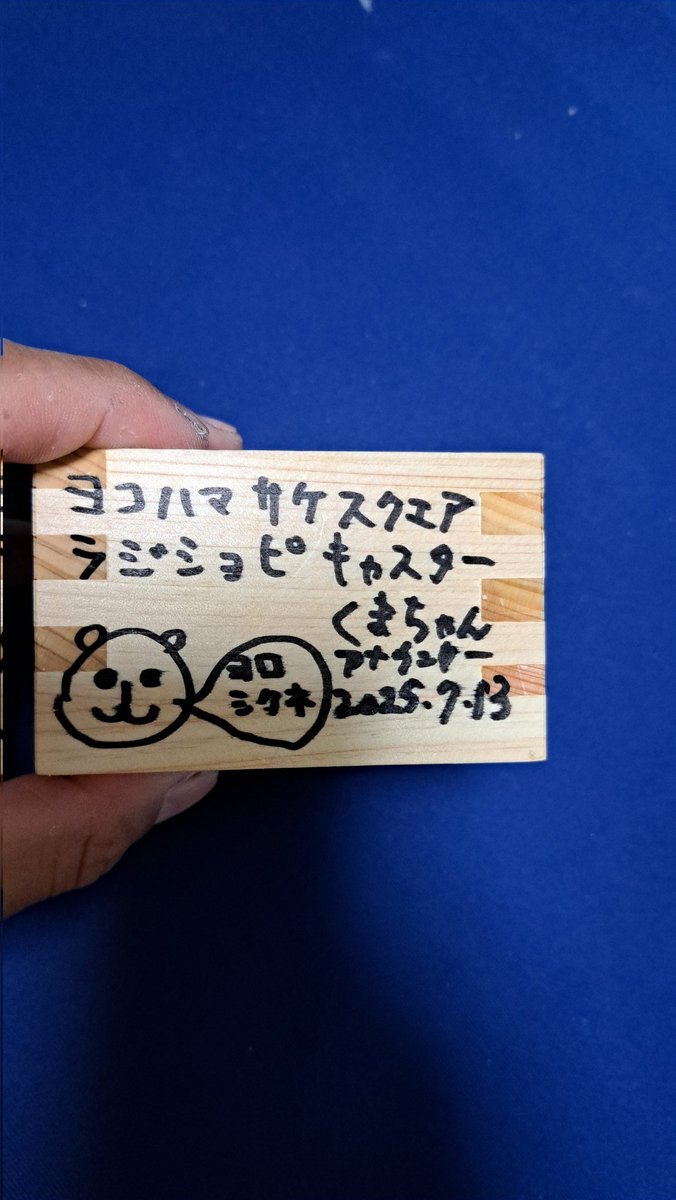 ヨコハマ サケスクエア
ラジショピ キャスター
くまちゃん
アナウンサー
ヨロ
シクネ
2025.7.13